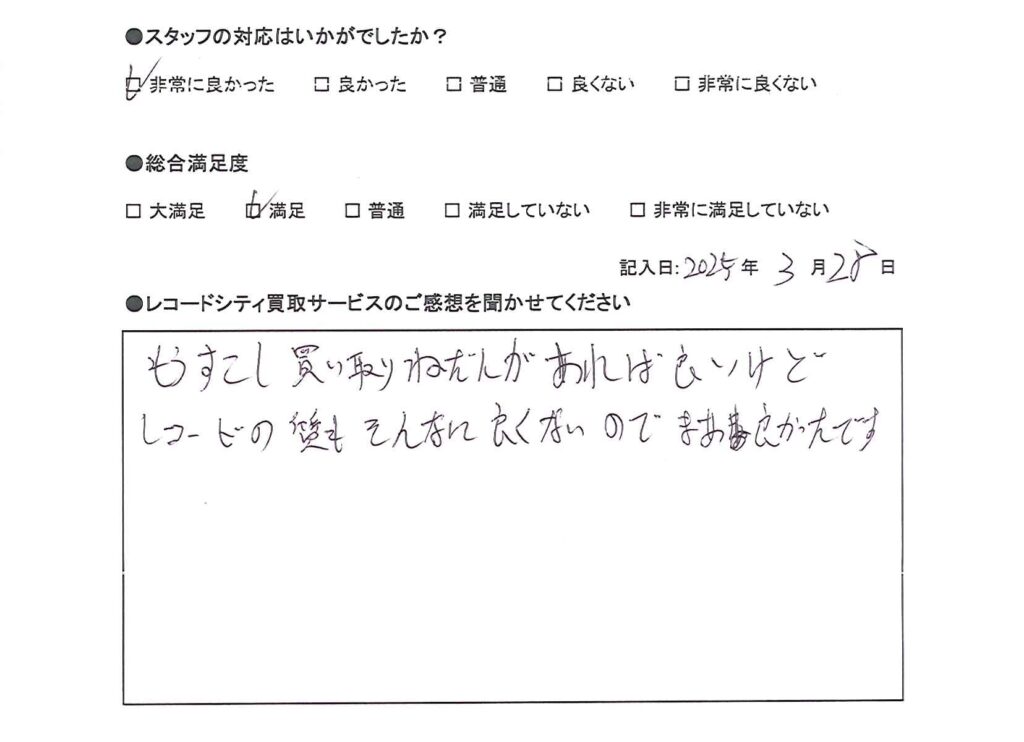 ●スタッフの対応はいかがでしたか？
☑ 非常に良かった □ 良かった □ 普通 □ 良くない □ 非常に良くない
●総合満足度
□ 大満足 ☑ 満足 □ 普通 □ 満足していない □ 非常に満足していない
記入日:2025年 3月28日
●レコードシティ買取サービスのご感想を聞かせてください
もうすこし買い取りねだんがあれば良いけど
レコードの質もそんなに良くないのでまあ良かったです